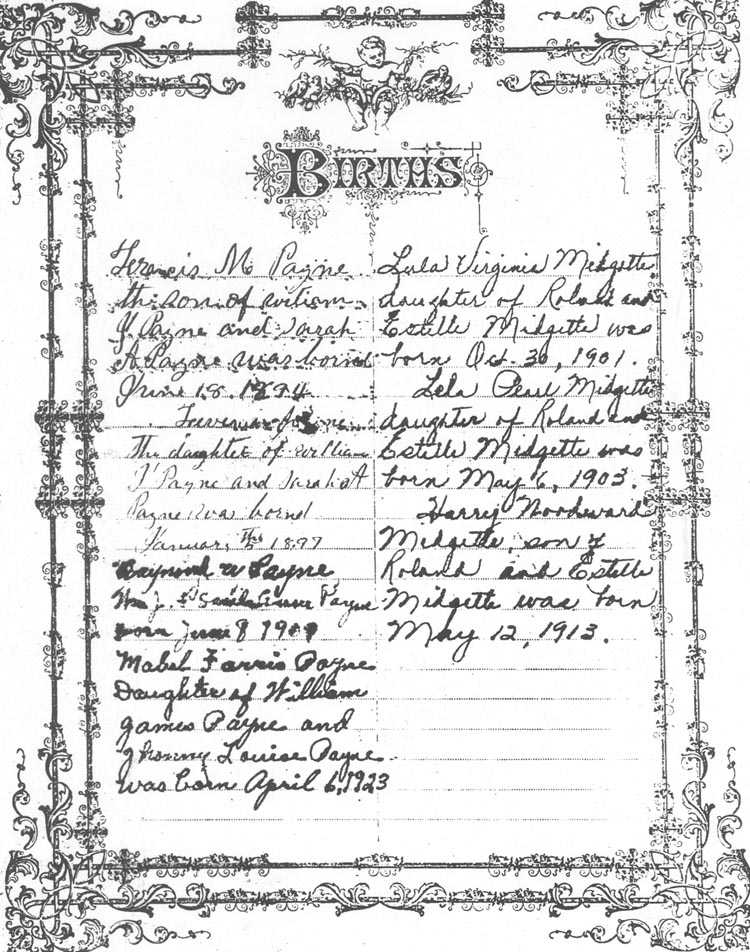 BIRTHS
Francis M Payne
the son of william
J Payne and Sarah
A Payne was born
June 18. 1894
the daughter of william
J Payne and Sarah A
Payne was born
1897
Raymond W Payne
Wm J. & Payne
born June 8
Mabel Farris Payne
Daughter of William
James Payne and
Louise Payne
was born April 6, 1923
Lula Virginia Midgette
daughter of Roland and
Estelle Midgette was
born Oct. 30, 1901.
Lela Pearl Midgette
daughter of Roland and
Estelle Midgette was
born May 6, 1903.
Harry Woodward
Midgette, son of
Roland and Estelle
Midgette was born
May 12, 1913.